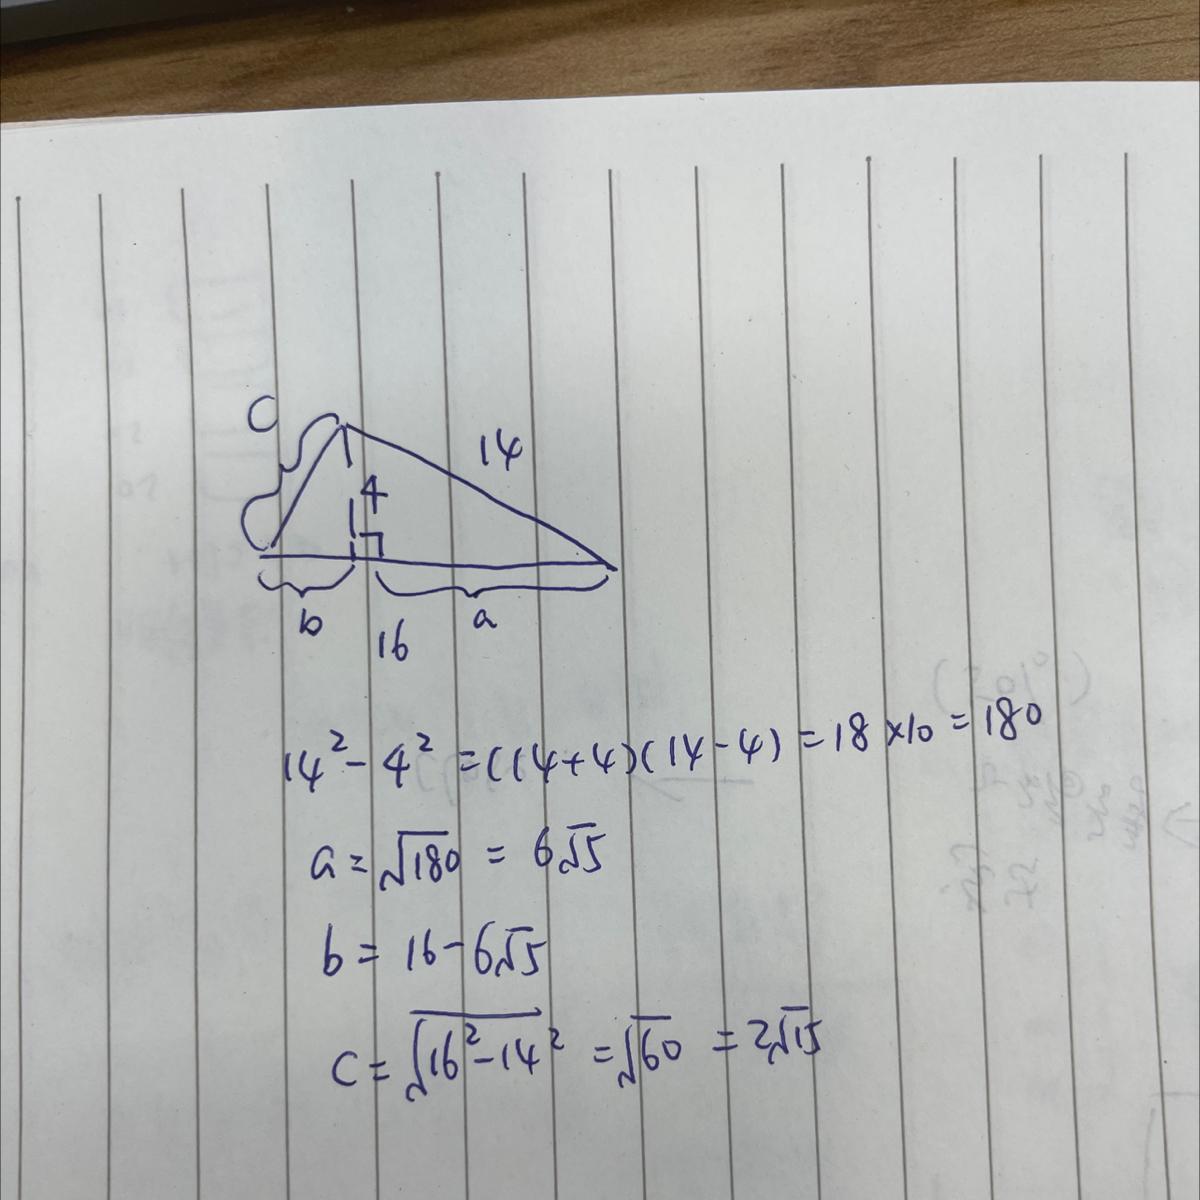 C
14
4
b
16
a
14² - 4² = (14+4)(14-4) = 18 × 10 = 180
a = √180 = 6√5
b = 16 - 6√5
C = √16² - 14² = √60 = 2√15